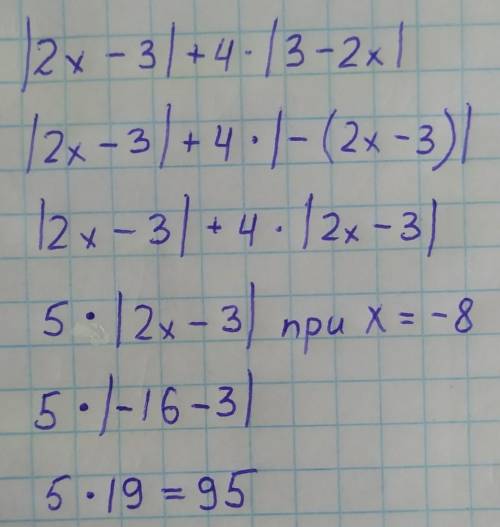 |2x - 3| + 4 · |3 - 2x|
|2x - 3| + 4 · |-(2x - 3)|
|2x - 3| + 4 · |2x - 3|
5 · |2x - 3| при x = -8
5 · |-16 - 3|
5 · 19 = 95